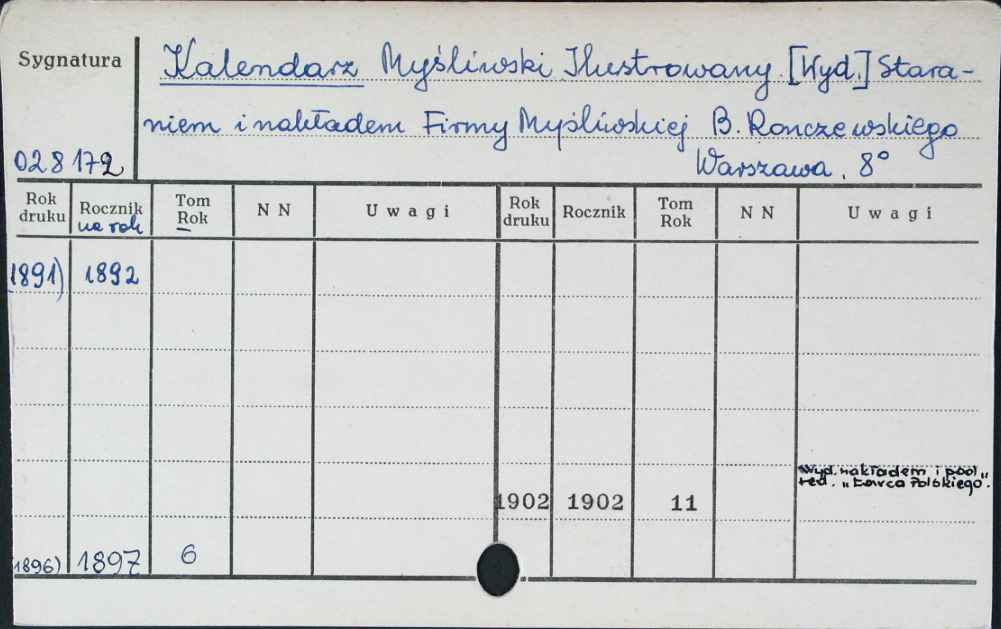 Sygnatura Kalendarz Myśliwski Ilustrowany. [Wyd.] Stara-
niem i nakładem Firmy Myśliwskiej B. Ronczewskiego
028172 Warszawa. 8°
Rok druku Rocznik na rok Tom Rok N N Uwagi Rok druku Rocznik Tom Rok N N Uwagi
(1891) 1892
Wyd. nakładem i pod
red. „Łowca Polskiego".
1902 1902 11
(1896) 1897 6